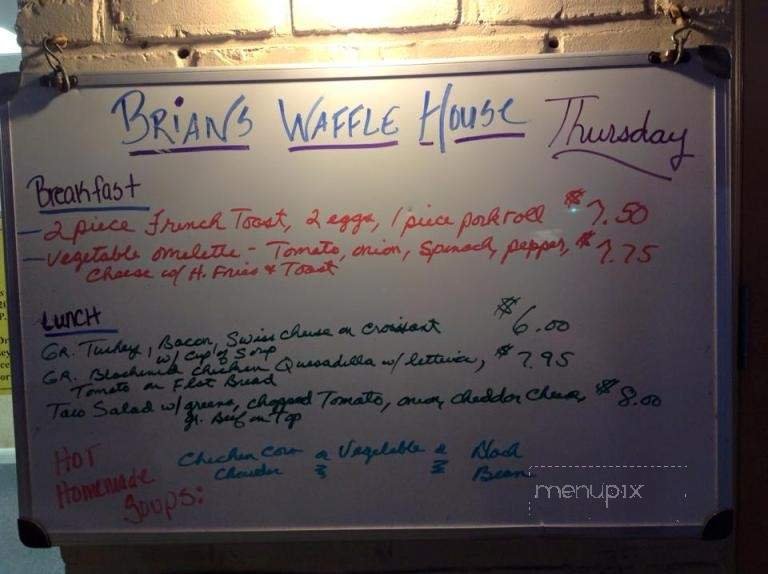 BRIAN'S WAFFLE HOUSE Thursday
Breakfast
- 2 piece French Toast, 2 eggs, 1 piece porkroll $7.50
- Vegetable omelette - Tomato, onion, Spinach, pepper, $7.75
Cheese w/ H. Fries & Toast
LUNCH
GR. Turkey, Bacon, Swiss cheese on croissant $6.00
w/ Cup of Soup
GR. Blackened Chicken Quesadilla w/ lettuce, $7.95
Tomato on Flat Bread
Taco Salad w/ greens, chopped Tomato, onion, cheddar cheese, $8.00
gr. Beef on Top
HOT
Homemade
Soups:
Chicken Corn
Chowder
Vegetable
Black
Bean
menupix